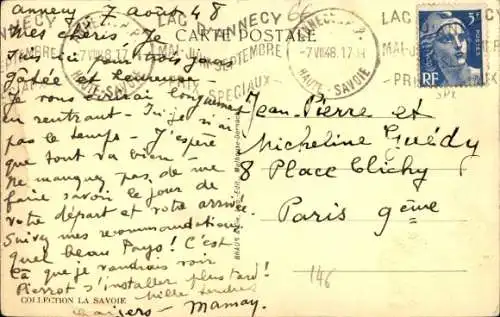 Annecy 7 Août 48
Mes chéris Je
suis ici pour trois jours
gâtée et heureuse -
Je vous écrirai longuement
en rentrant - Ici je n'ai
pas le temps - J'espère
que tout va bien -
Ne manquez pas de me
faire savoir le jour de
votre départ et votre arrivée
Suivez mes recommandations
quel beau Pays! C'est
là que je voudrais voir
Pierrot s'installer plus tard!
Mille tendres
baisers - Mamay.
COLLECTION LA SAVOIE
CARTE POSTALE
LAC D'ANNECY
MAI-JUIN-SEPTEMBRE
PRIX SPÉCIAUX
ANNECY R.P.
-7 VIII 48. 17 H
HAUTE-SAVOIE
LAC
MAI-JUI
PRI
SPE
5F
RF
Jean-Pierre et
Micheline Guédy
8 Place Clichy
Paris 9ème
146